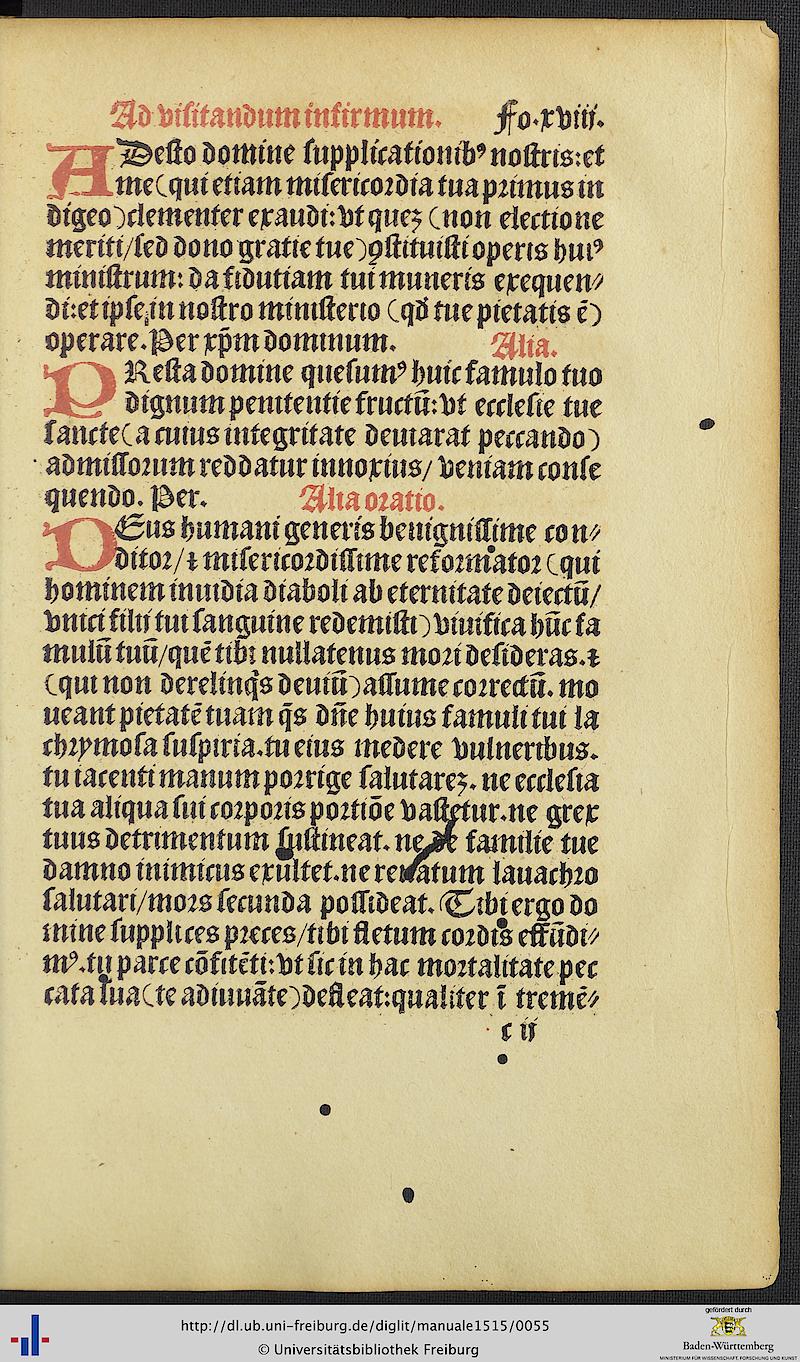 Ad visitandum infirmum. Fo.xviij.
ADesto domine supplicationibꝰ nostris:et
me(qui etiam misericordia tua primus in
digeo)clementer exaudi:vt quez (non electione
meriti/sed dono gratie tue)ꝯstituisti operis huiꝰ
ministrum: da fidutiam tui muneris exequen⸗
di:et ipse in nostro ministerio (qđ tue pietatis ē)
operare. Per xp̄m dominum. Alia.
PResta domine quesumꝰ huic famulo tuo
dignum penitentie fructū: vt ecclesie tue
sancte(a cuius integritate deuiarat peccando)
admissorum reddatur innoxius/ veniam conse
quendo. Per. Alia oratio.
DEus humani generis benignissime con⸗
ditor/⁊ misericordissime reformator (qui
hominem inuidia diaboli ab eternitate deiectū/
vnici filij tui sanguine redemisti)viuifica hūc fa
mulū tuū/quē tibi nullatenus mori desideras.⁊
(qui non derelinq̄s deuiū)assume correctū. mo
ueant pietatē tuam q̄s dn̄e huius famuli tui la
chrymosa suspiria.tu eius medere vulneribus.
tu iacenti manum porrige salutarez. ne ecclesia
tua aliqua sui corporis portiōe vastetur.ne grex
tuus detrimentum sustineat. ne de familie tue
damno inimicus exultet.ne renatum lauachro
salutari/mors secunda possideat. Tibi ergo do
mine supplices preces/tibi fletum cordis effūdi⸗
mꝰ.tu parce cōfitēti:vt sic in hac mortalitate pec
cata sua(te adiuuāte)defleat:qualiter ī tremē⸗
c ij
http://dl.ub.uni-freiburg.de/diglit/manuale1515/0055
© Universitätsbibliothek Freiburg
gefördert durch
Baden-Württemberg
MINISTERIUM FÜR WISSENSCHAFT, FORSCHUNG UND KUNST